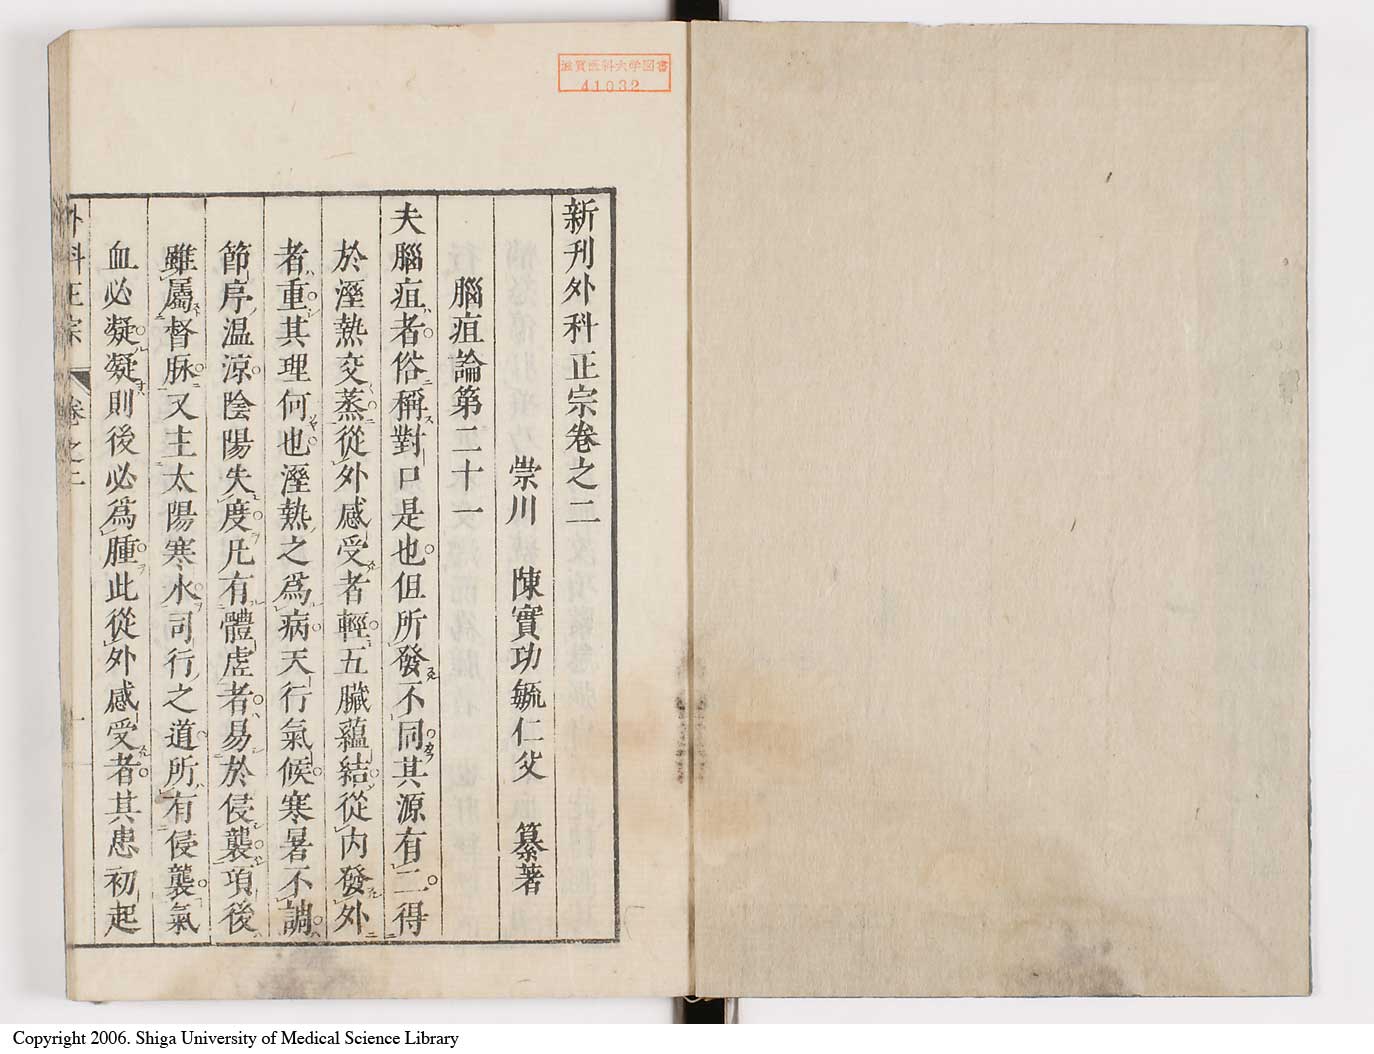 滋賀医科大学図書
41032
新刊外科正宗卷之二
崇川 陳實功毓仁父 纂著
腦疽論第二十一
夫腦疽者俗稱對口是也但所發不同其源有二得
於溼熱交蒸從外感受者輕五臟蘊結從内發外
者重其理何也溼熱之爲病天行氣候寒暑不調
節序温涼陰陽失度凡有體虚者易於侵襲項後
雖屬督脉又主太陽寒水司行之道所有侵襲氣
血必凝凝則後必爲腫此從外感受者其患初起
外科正宗 卷之二 一
Copyright 2006. Shiga University of Medical Science Library